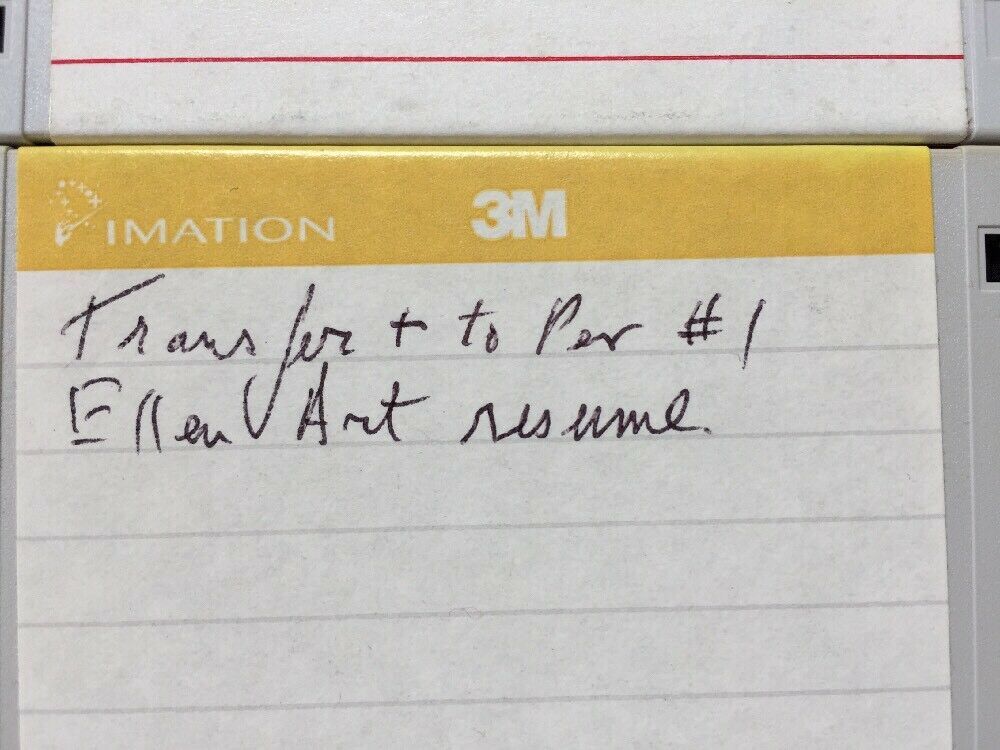 IMATION 3M
Transfer + to Per #1
Ellen Art resume